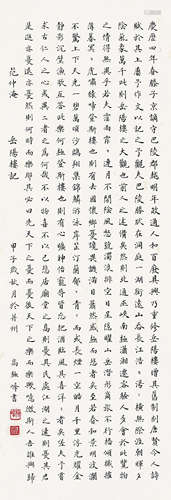 慶歷四年春滕子京謫守巴陵郡越明年政通人和百廢具興乃重修岳陽樓增其舊制刻唐賢今人詩
賦於其上屬予作文以記之予觀夫巴陵勝狀在洞庭一湖銜遠山吞長江浩浩湯湯橫無際涯朝暉夕
陰氣象萬千此則岳陽樓之大觀也前人之述備矣然則北通巫峽南極瀟湘遷客騷人多會於此覽物
之情得無異乎若夫霪雨霏霏連月不開陰風怒號濁浪排空日星隱曜山岳潛形商旅不行檣傾楫摧
薄暮冥冥虎嘯猿啼登斯樓也則有去國懷鄉憂讒畏譏滿目蕭然感極而悲者矣至若春和景明波瀾
不驚上下天光一碧萬頃沙鷗翔集錦鱗游泳岸芷汀蘭郁郁青青而或長煙一空皓月千里浮光躍金
靜影沉璧漁歌互答此樂何極登斯樓也則有心曠神怡寵辱偕忘把酒臨風其喜洋洋者矣嗟夫予嘗
求古仁人之心或異二者之為何哉不以物喜不以己悲居廟堂之高則憂其民處江湖之遠則憂其君
是進亦憂退亦憂然則何時而樂耶其必曰先天下之憂而憂後天下之樂而樂歟噫微斯人吾誰與歸
范仲淹 岳陽樓記 甲子歲秋月於并州 高 峰書